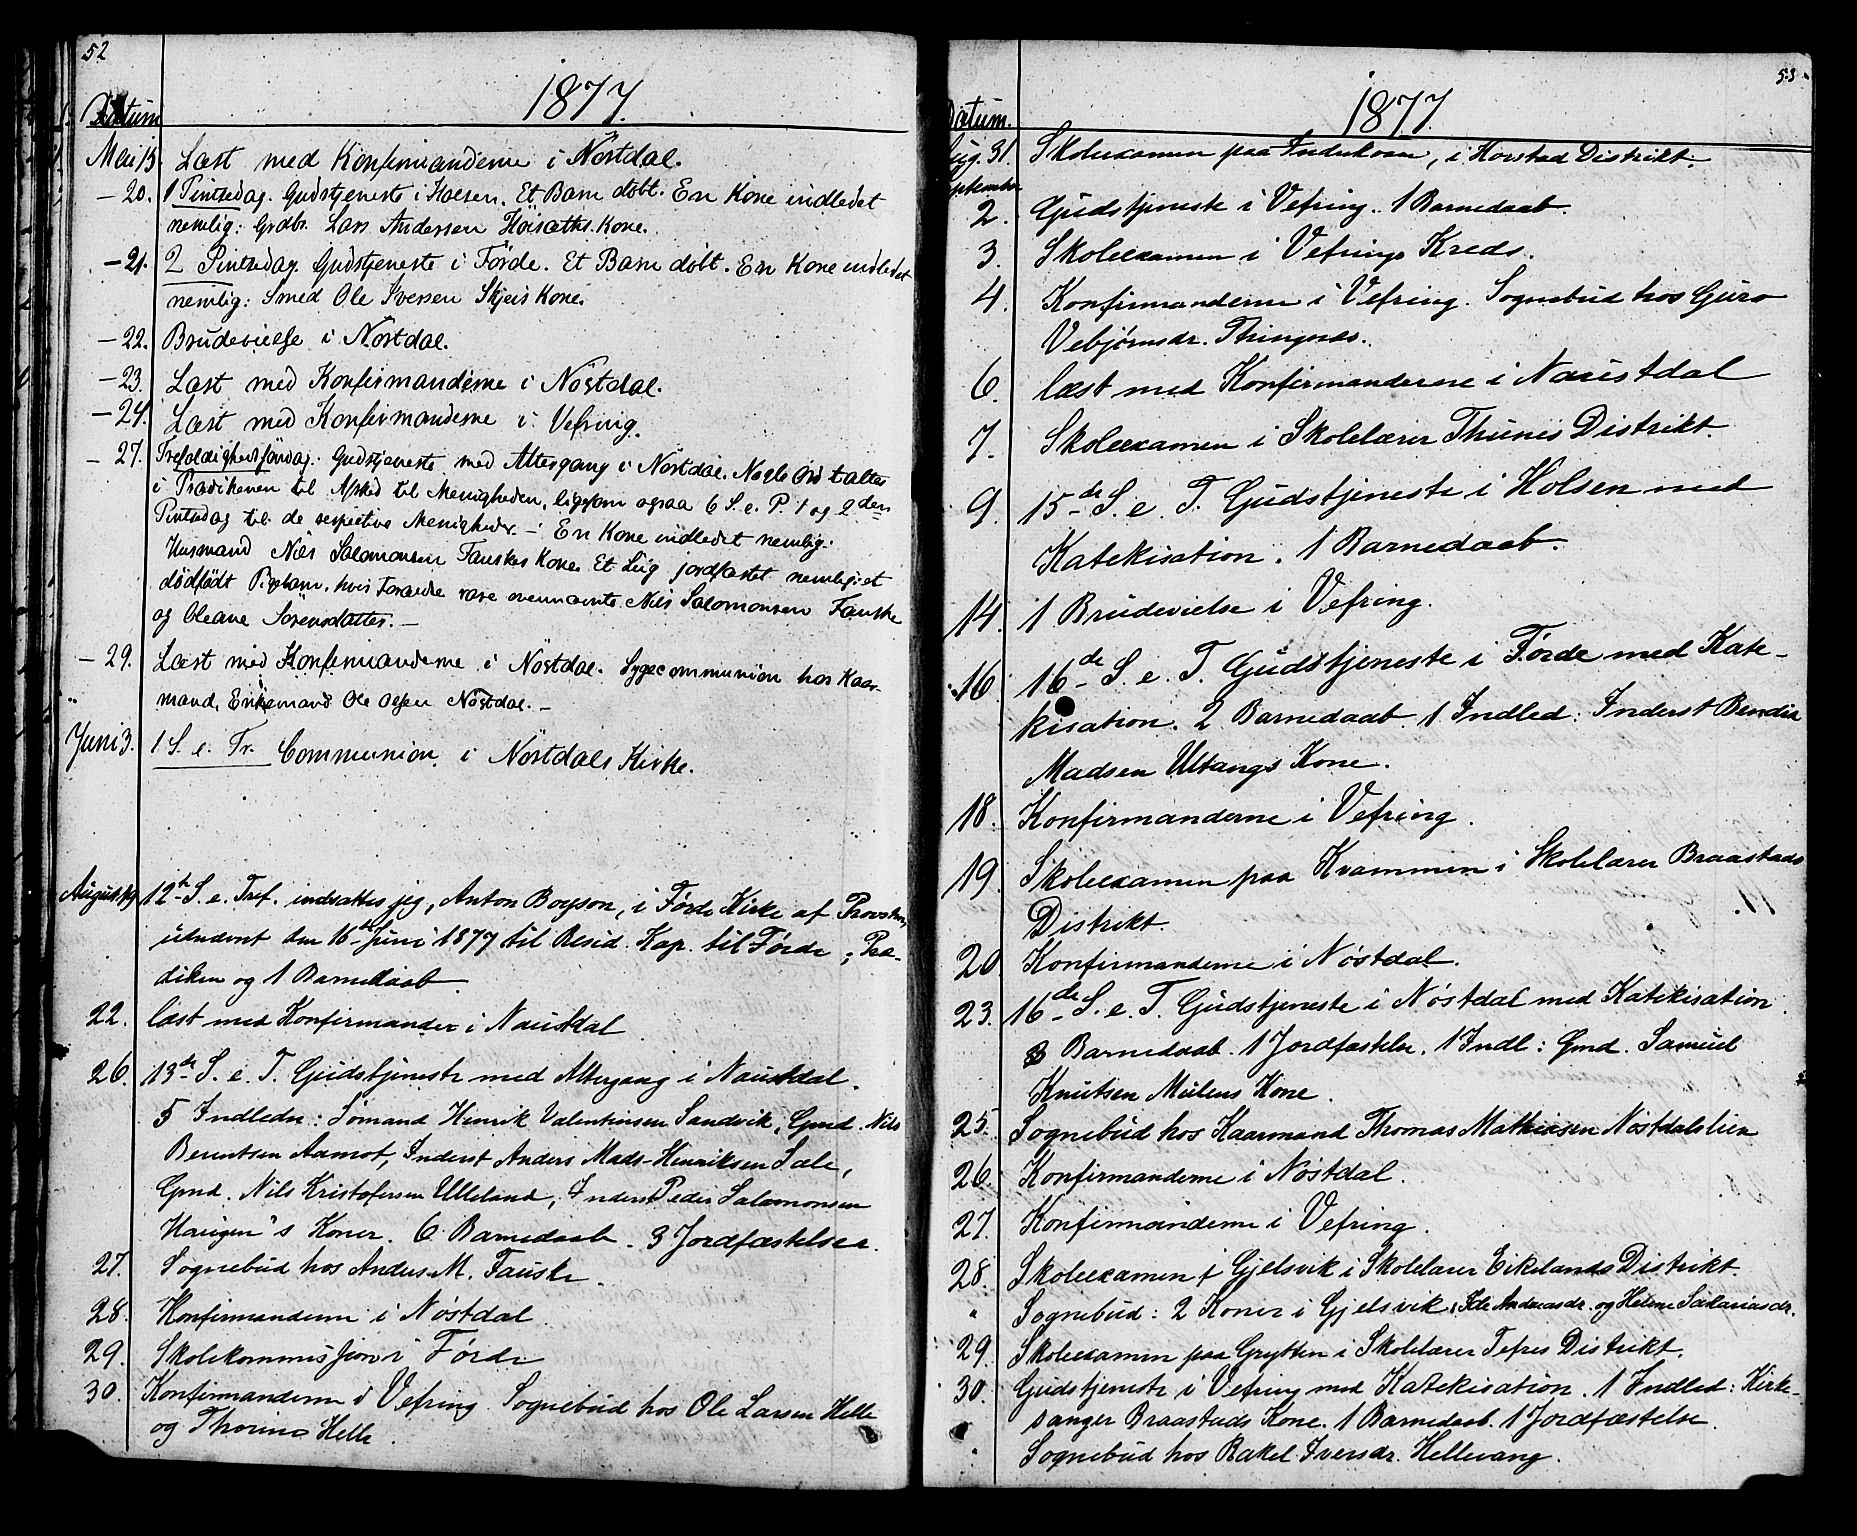 52
1877.
Datum
Mai 13. Læst med Konfirmanderne i Nöstdal.
– 20. 1 Pintsedag. Gudstjeneste i Holsen. Et Barn döbt. En Kone indledet
nemlig: Grdbr. Lars Andersen Höisæths Kone.
– 21. 2 Pintsedag. Gudstjeneste i Förde. Et Barn döbt. En Kone indledet
nemlig: Smed Ole Iversen Skjeis Kone.
– 22. Brudevielse i Nöstdal.
– 23. Læst med Konfirmanderne i Nöstdal.
– 24. Læst med Konfirmanderne i Vefring.
– 27. Trefoldighedssöndag. Gudstjeneste med Altergang i Nöstdal. Nogle Ord taltes
i Prædikenen til Afsked til Menigheden, ligesom ogsaa 6 S. e. P. 1 og 2den
Pintsedag til de respective Menigheder. – En Kone indledet nemlig:
Husmand Nils Salomonsen Fauskes Kone. Et Liig jordfæstet nemlig: et
dödfödt Pigebarn, hvis Forældre vare ovennævnte Nils Salomonsen Fauske
og Oleane Sörensdatter. –
– 29. Læst med Konfirmanderne i Nöstdal. Sygecommunion hos Kaar-
mand, Enkemand Ole Olsen Nöstdal. –
Juni 3. 1 S. e. Tr. Communion i Nöstdals Kirke.
August 19. 12te S. e. Tref. indsattes jeg, Anton Boyson, i Førde Kirke af Provsten,
udnævnt den 16de Juni 1877 til Resid. Kap. til Førde; Præ-
diken og 1 Barnedaab.
22. læst med Konfirmander i Naustdal
26. 13de S. e. T. Gudstjeneste med Altergang i Naustdal.
5 Indledn: Sømand Henrik Valentinsen Sandvik, Gmd. Nils
Berentsen Aamot, Inderst Anders Mads-Henriksen Sæle,
Gmd. Nils Kristofersen Ulleland, Inderst Peder Salomonsen
Haugen's Koner. 6 Barnedaab. 3 Jordfæstelser.
27. Sognebud hos Anders M. Fauske.
28. Konfirmanderne i Nøstdal
29. Skolekommission i Førde
30. Konfirmanderne i Vefring. Sognebud hos Ole Larsen Helle
og Thorine Helle.
53
1877.
Datum.
Aug. 31. Skoleexamen paa, i Horstad Distrikt.
September
2. Gudstjeneste i Vefring. 1 Barnedaab.
3. Skoleexamen i Vefrings Kreds.
4. Konfirmanderne i Vefring. Sognebud hos Guro
Vebjørnsdr. Thingnes.
6. læst med Konfirmanderne i Naustdal
7. Skoleexamen i Skolelærer Thunes Distrikt.
9. 15de S. e. T. Gudstjeneste i Holsen med
Katekisation. 1 Barnedaab.
14. 1 Brudevielse i Vefring.
16. 16de S. e. T. Gudstjeneste i Førde med Kate-
kisation. 2 Barnedaab. 1 Indled: Inderst Bendix
Madsen Ultangs Kone.
18. Konfirmanderne i Vefring.
19. Skoleexamen paa Kvammen i Skolelærer Braastads
Distrikt.
20 Konfirmanderne i Nøstdal.
23. 16de S. e. T. Gudstjeneste i Nøstdal med Katekisation.
3 Barnedaab. 1 Jordfæstelse. 1 Indl: Gmd. Samuel
Knutsen Mulens Kone.
25. Sognebud hos Kaarmand Thomas Mathiesen Nøstdalslien
26. Konfirmanderne i Nøstdal.
27. Konfirmanderne i Vefring.
28. Skoleexamen i Gjelsvik i Skolelærer Eikelands Distrikt.
" Sognebud: 2 Koner i Gjelsvik, Ide Andreasdr. og Helene Sakariasdr.
29. Skoleexamen paa Grytten i Skolelærer Tefres Distrikt.
30. Gudstjeneste i Vefring med Katekisation. 1 Indled: Kirke-
sanger Braastads Kone. 1 Barnedaab. 1 Jordfæstelse
Sognebud hos Rakel Iversdr. Hellevang.